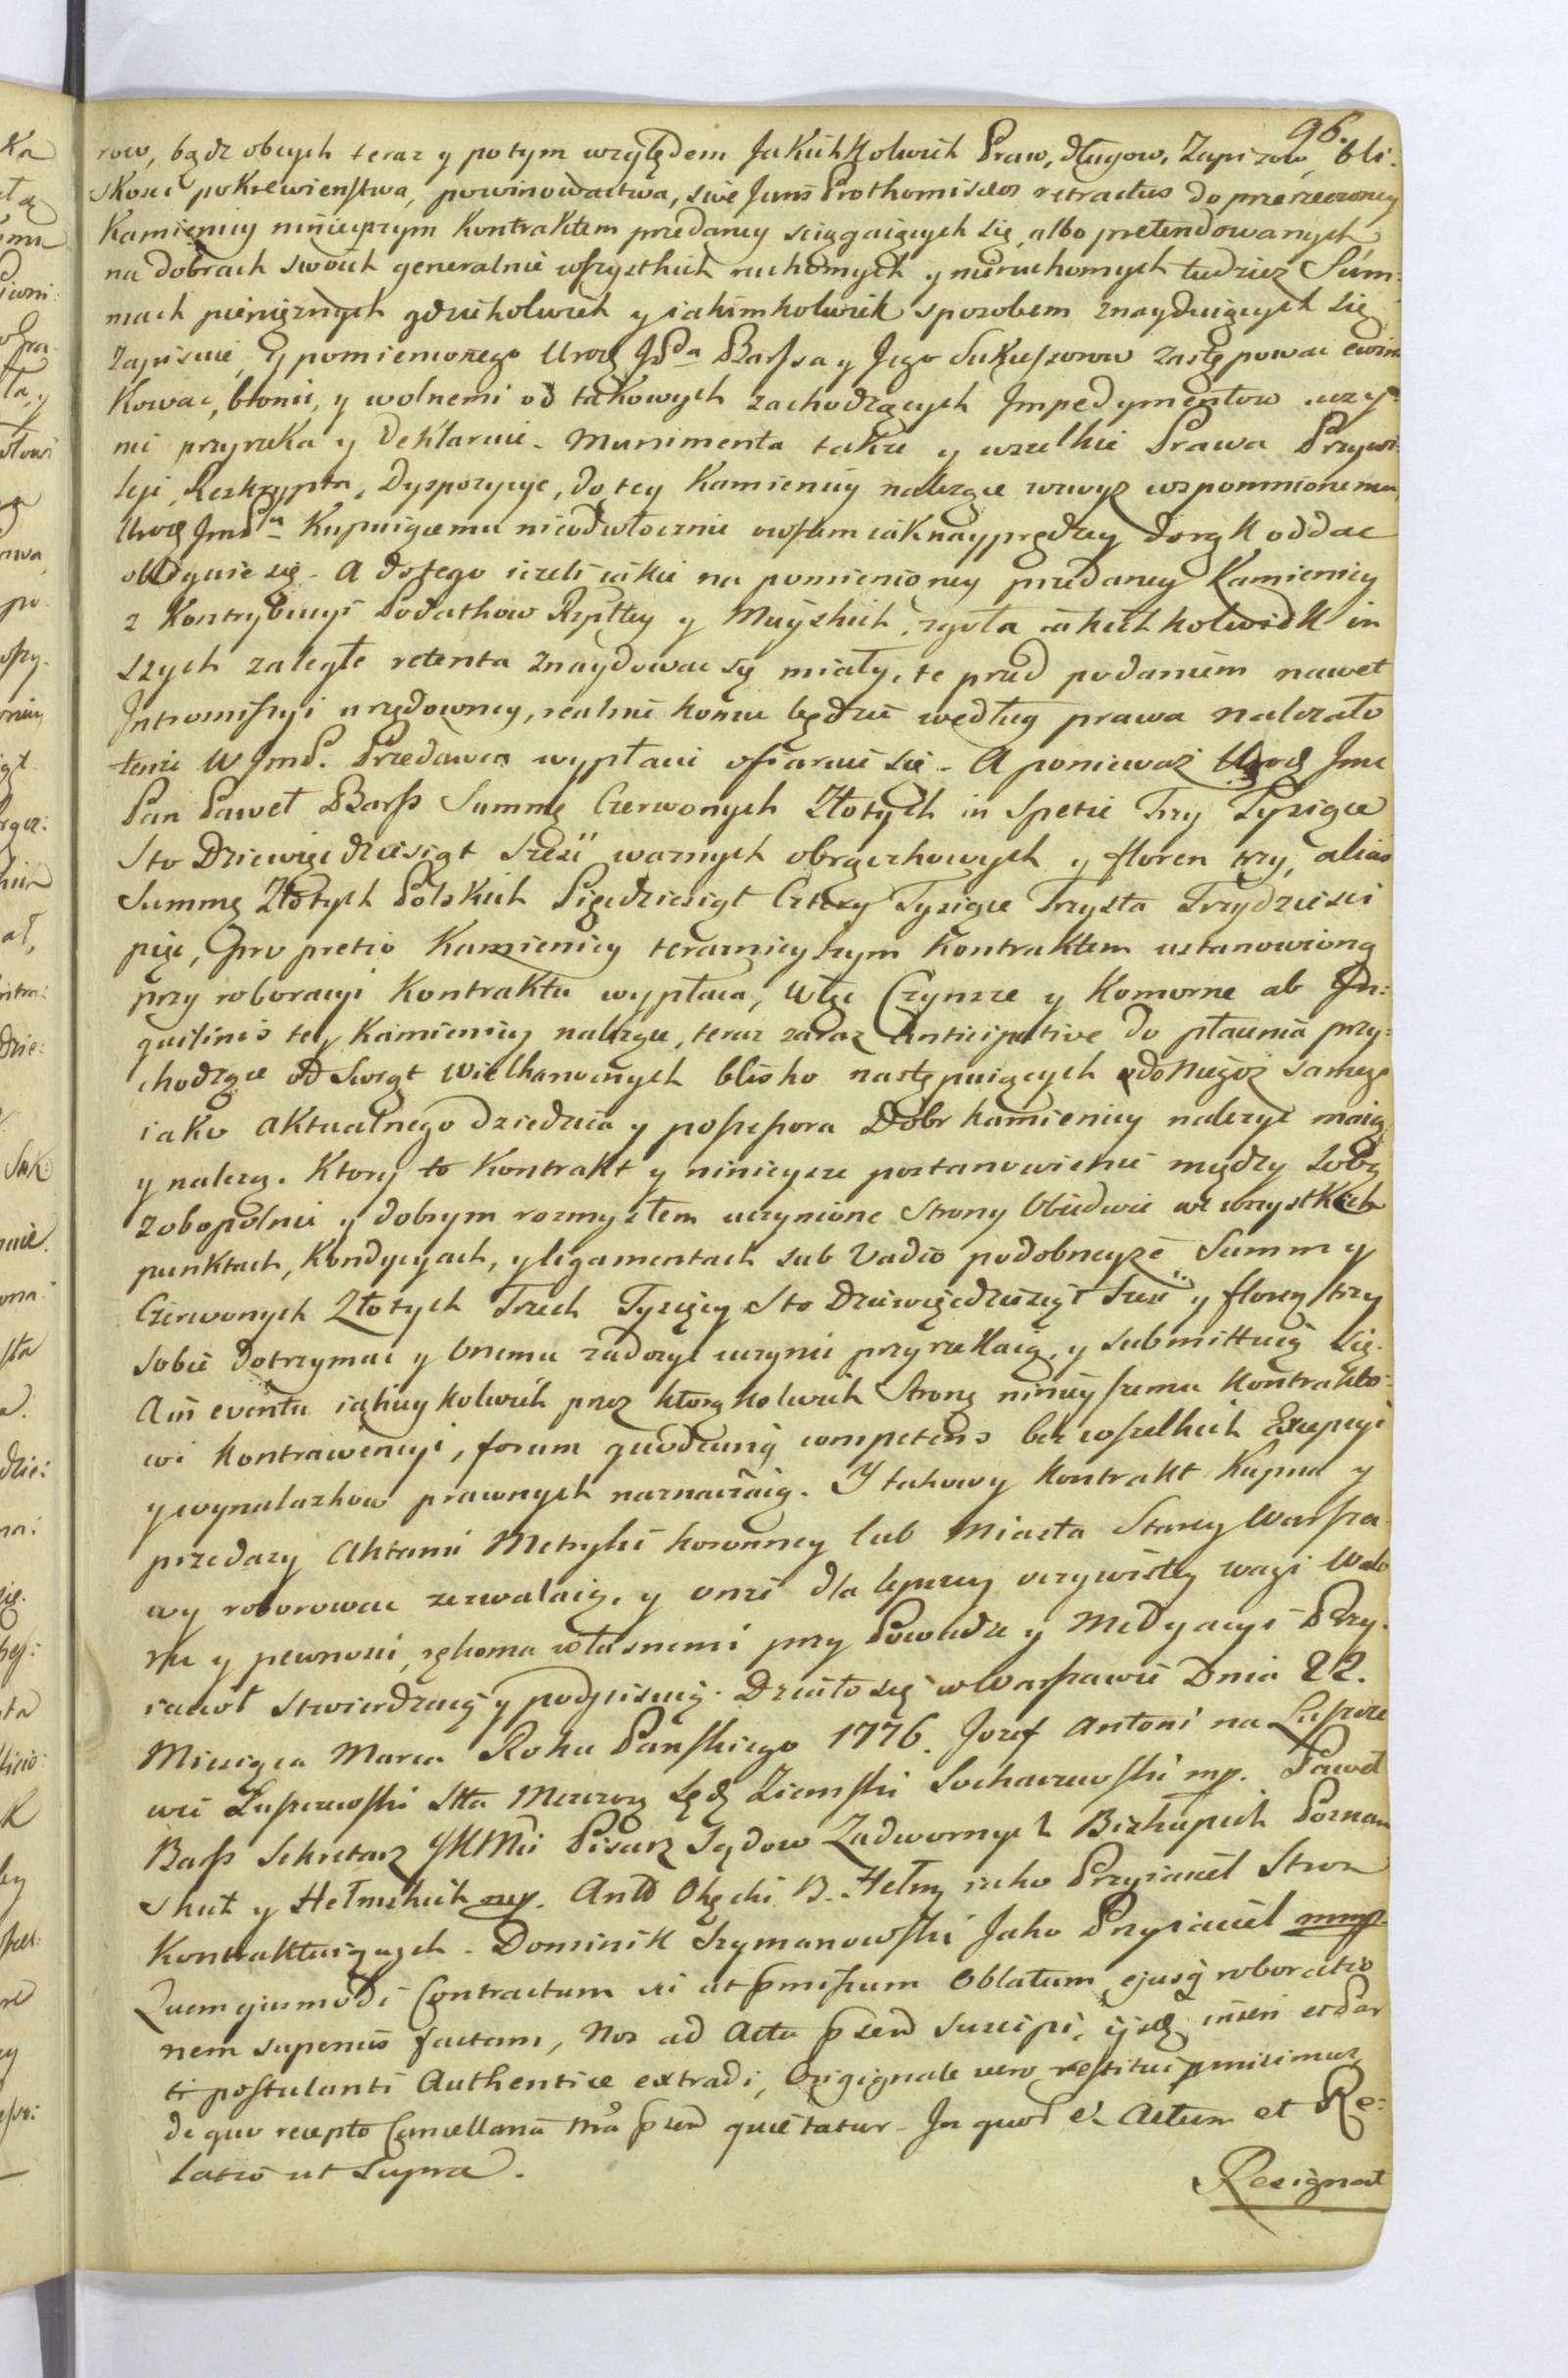 96.
row, bądz obcych teraz y potym względem Jakichkolwiek Praw, długow, Zapisow, bli-
skości pokrewienstwa, powinowactwa, sive Juris Prothomiseos retractus do przerzeczoney
Kamienicy ninieyszym Kontraktem przedaney sciągaiących się, albo pretendowanych
na dobrach swoich generalnie wszystkich ruchomych y nieruchomych tudziez Sum-
mach pieniężnych gdziekolwiek y iakimkolwiek sposobem znayduiących się
zapisuie, y pomienionego Urodz JPa Barssa y Jego Sukcessorow zastępować ewin
kować, bronić, y wolnemi od takowych zachodzących Jmpedymentow uczy-
nić przyrzeka y deklaruie - Munimenta także y wszelkie Prawa Przywi-
leje, Reskrypta, Dyspozycye, do tey Kamienicy należące wzwyz wspomnionemu
Urodz JmP Kupuiącemu nieodwłocznie owszem iaknayprędzey do rąk oddać
obliguie się - A do tego ieżeli iakie na pomienioney przedaney Kamienicy
z Kontrybucyi Podatkow Rzpltey y Mieyskich, zgoła iakichkolwiek in
szych zaległe retenta znaydować się miały, te przed podaniem nawet
Intromissyi urzędowney, realnie komu będzie według prawa nalezało
tenże W JmP. Przedawca wypłacić ofiaruie się - A ponieważ Urodz Jmc
Pan Paweł Barss Summę Czerwonych Złotych in Specie Trzy Tysiące
Sto Dziewięćdziesiąt Sześć waznych obrączkowych y floren trzy, alias
Summę Złotych Polskich Pięćdziesiąt Cztery Tysiące Trzysta Trzydziesci
pięć, pro pretio Kamienicy teraznieyszym Kontraktem ustanowioną
przy roboracyi Kontraktu wypłaca, Więc Czynsze y Komorne ab In-
quilinis tey Kamienicy należące, teraz zaraz anticipative do płacenia przy-
chodzące od Swiąt Wielkanocnych blisko następuiących do Niegoż samego
iako aktualnego dziedzica y possessora Dobr kamienicy należyć maią
y nalezą. Ktory to Kontrakt y ninieysze postanowienie między sobą
zobopolnie y dobrym rozmysłem uczynione Strony Obiedwie we wszystkich
punktach, Kondycyach, y ligamentach sub Vadio podobneyże Summy
Czerwonych Złotych Trzech Tysięcy Sto Dziewięćdziesiąt Sześć y floren trzy
sobie dotrzymać y Onemu zadosyć uczynić przyrzekaią, y submittuią się.
A in eventu iakieykolwiek przez ktorąkolwiek Stronę ninieyszemu Kontrakto-
wi kontrawencyi, forum quodcunq competens bez wszelkich Excepcyi
y wynalazkow prawnych naznaczaią. Y takowy Kontrakt Kupna y
przedazy Aktami Metryki koronney lub Miasta Starey Warsza-
wy roborować zezwalaią, y onże dla lepszey oczywistey wagi Walo
ru y pewności, rękoma własnemi przy Powadze y Medyacyi Przy-
iacioł stwierdzaią y podpisuią. Działo się w Warszawie Dnia 22.
Miesiąca Marca Roku Panskiego 1776. Jozef Antoni na Łuszcze
wie Łuszczewski Stta Mszczon Sędz Ziemski Sochaczewski mp. Paweł
Barss Sekretarz JKMci Pisarz Sądow Zadwornych Biskupich Poznan
skich y Hełmskich mp. Ant Okęcki B. Hełmz iako Przyiaciel Stron
Kontraktuiących - Dominik Szymanowski Jako Przyiaciel mmp.
Quem ejusmodi Contractum uti ut pmissum Oblatum, ejusq roboratio
nem superius factam, Nos ad Acta psend suscipi, ijsdq inseri et Par
ti postulanti Authentice extradi, Origignale vero restitui pmisimus
de quo recepto Cancellaria Nra psend quietatur - In quor &. Actum et Re-
latio ut Supra.
Resignat